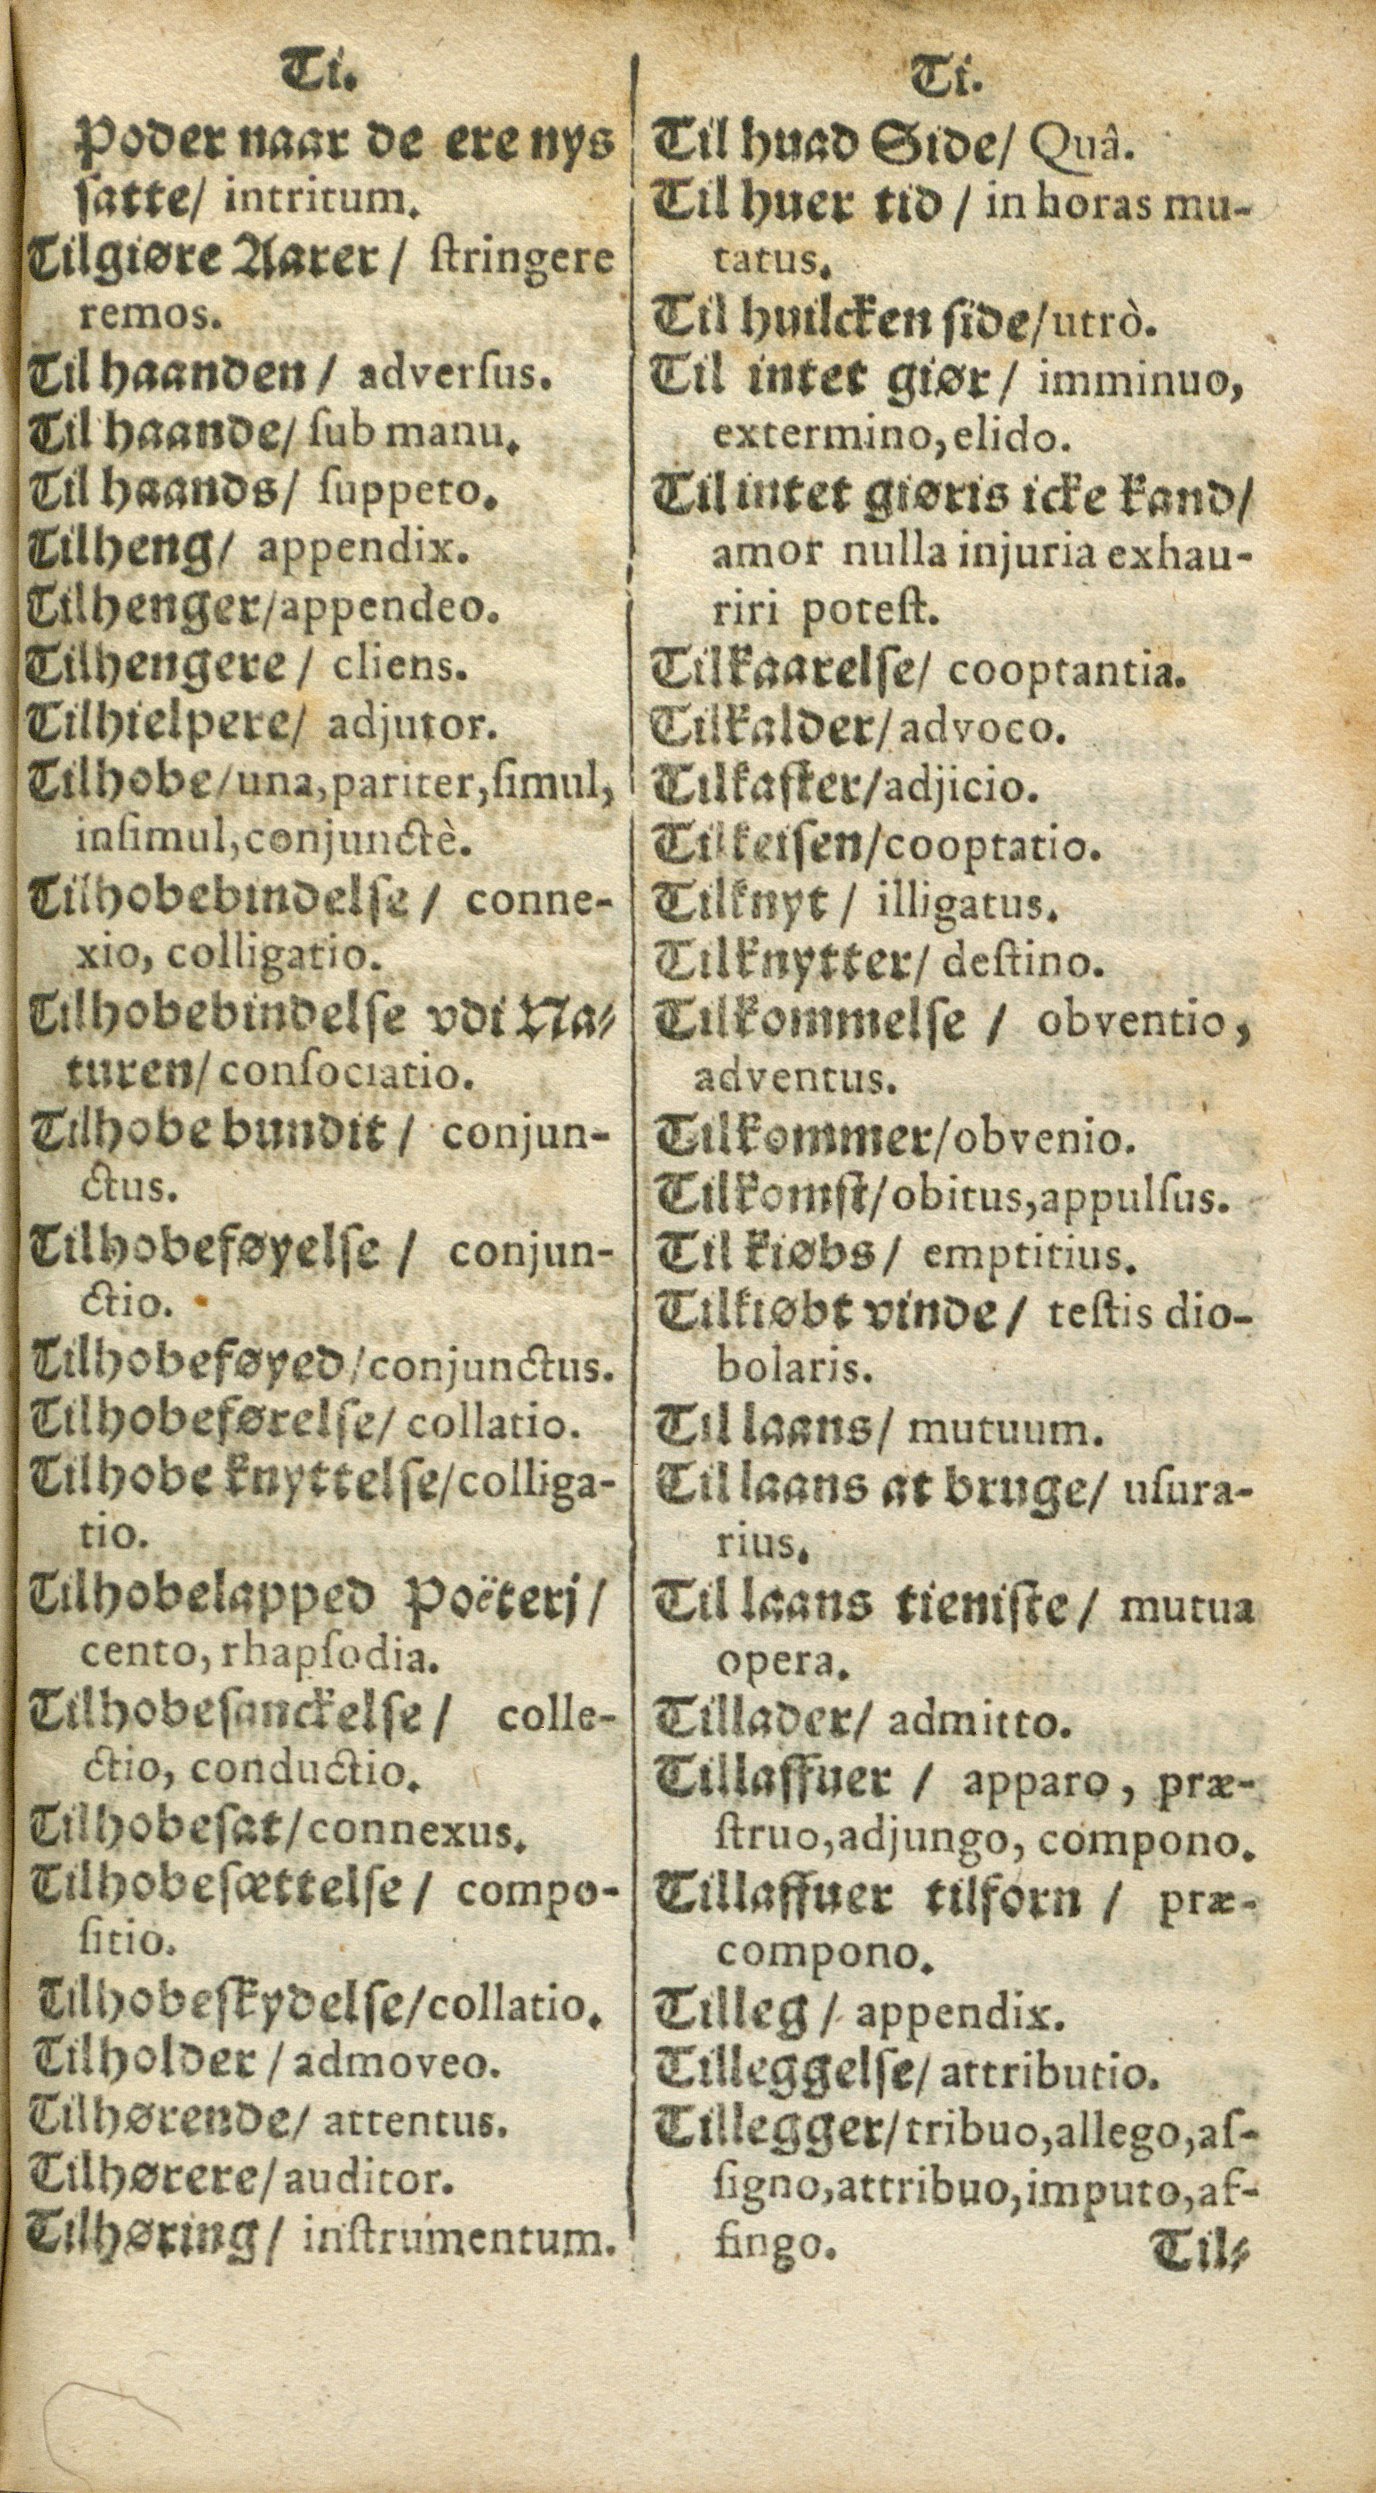 Ti.
Poder naar de ere nys
ſatte/ intritum.
Tilgiøre Aarer/ ſtringere
remos.
Til haanden/ adverſus.
Til haande/ ſub manu.
Til haands/ ſuppeto.
Tilheng/ appendix.
Tilhenger/appendeo.
Tilhengere/ cliens.
Tilhielpere/ adjutor.
Tilhobe/una,pariter,ſimul,
inſimul,conjunctè.
Tilhobebindelſe/ conne-
xio, colligatio.
Tilhobebindelſe vdi Na-
turen/conſociatio.
Tilhobe bundit/ conjun-
ctus.
Tilhobeføyelſe/ conjun-
ctio.
Tilhobeføyed/conjunctus.
Tilhobeførelſe/ collatio.
Tilhobe knyttelſe/colliga-
tio.
Tilhobelapped Poëterj/
cento, rhapſodia.
Tilhobeſanckelſe/ colle-
ctio, conductio.
Tilhobeſat/connexus.
Tilhobeſættelſe/ compo-
ſitio.
Tilhobeſkydelſe/collatio.
Tilholder/admoveo.
Tilhørende/ attentus.
Tilhørere/auditor.
Tilhøring/ inſtrumentum.
Ti.
Til huad Side/ Quâ.
Til huer tid/ in horas mu-
tatus.
Til huilcken ſide/utrò.
Til intet giør/ imminuo,
extermino,elido.
Til intet giøris icke kand/
amor nulla injuria exhau-
riri poteſt.
Tilkaarelſe/ cooptantia.
Tilkalder/advoco.
Tilkaſter/adjicio.
Tilkeiſen/cooptatio.
Tilknyt/ illigatus.
Tilknytter/ deſtino.
Tilkommelſe/ obventio,
adventus.
Tilkommer/obvenio.
Tilkomſt/obitus,appulſus.
Til kiøbs/ emptitius.
Tilkiøbt vinde/ teſtis dio-
bolaris.
Til laans/ mutuum.
Til laans at bruge/ uſura-
rius.
Til laans tieniſte/ mutua
opera.
Tillader/ admitto.
Tillaffuer/ apparo, præ-
ſtruo,adjungo, compono.
Tillaffuer tilforn/ præ-
compono.
Tilleg/ appendix.
Tilleggelſe/attributio.
Tillegger/tribuo,allego,aſ-
ſigno,attribuo,imputo,af-
fingo.
Til-